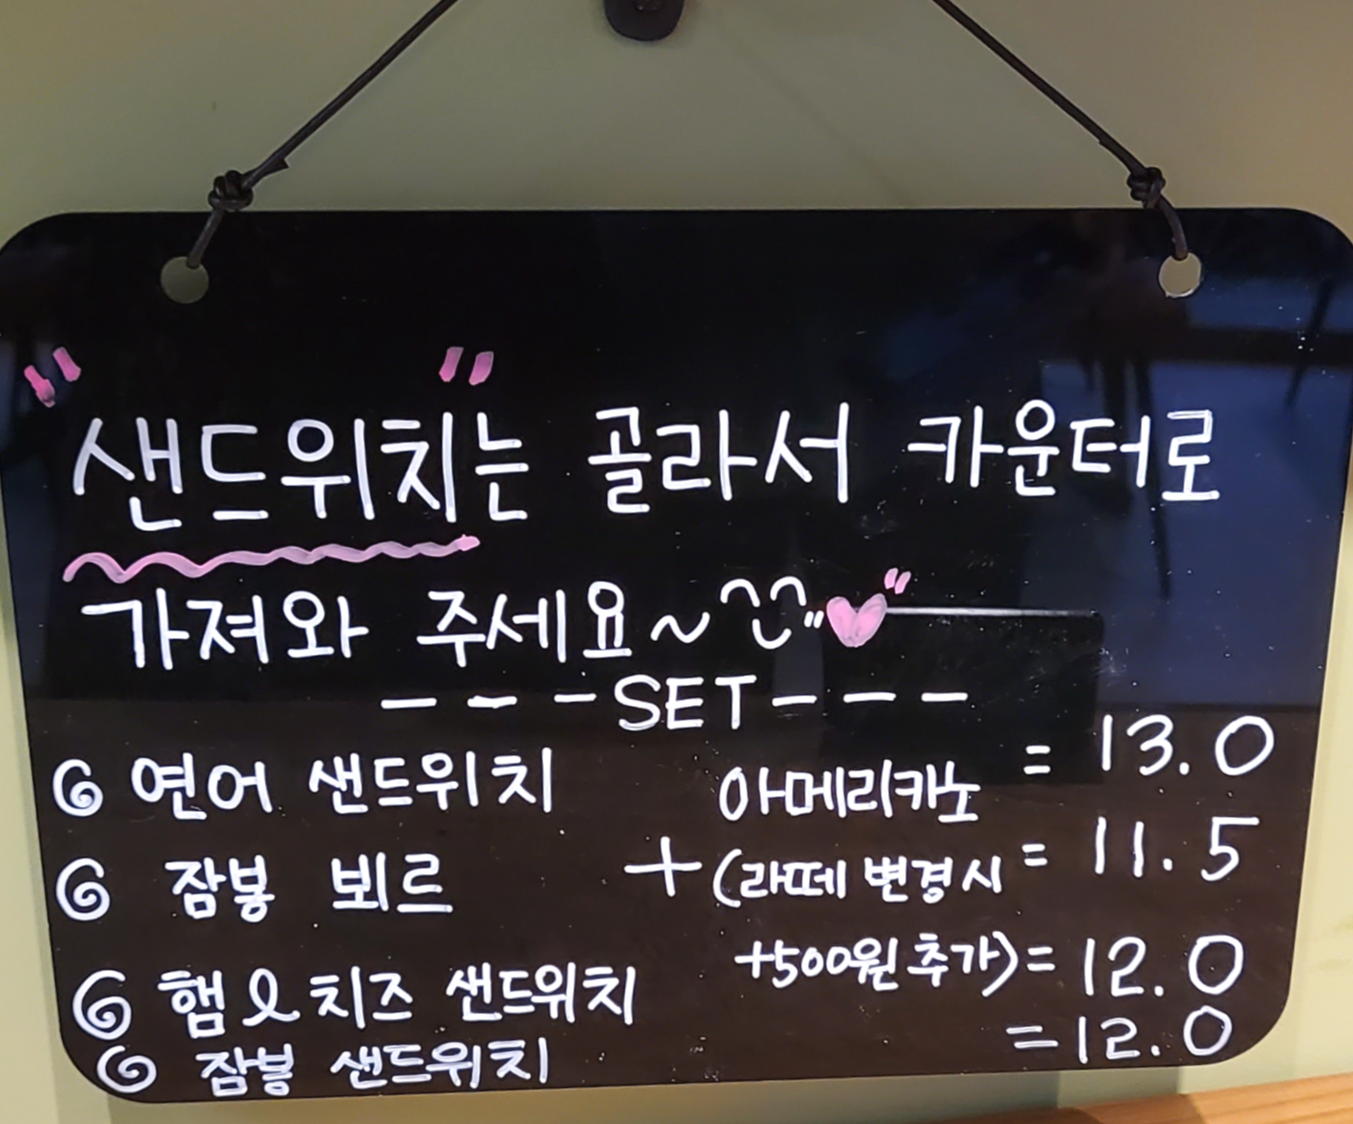 "샌드위치"는 골라서 카운터로
가져와 주세요~^^
---SET---
연어 샌드위치 아메리카노 = 13.0
잠봉 뵈르 + (라떼 변경시 = 11.5
햄&치즈 샌드위치 +500원 추가) = 12.0
잠봉 샌드위치 = 12.0